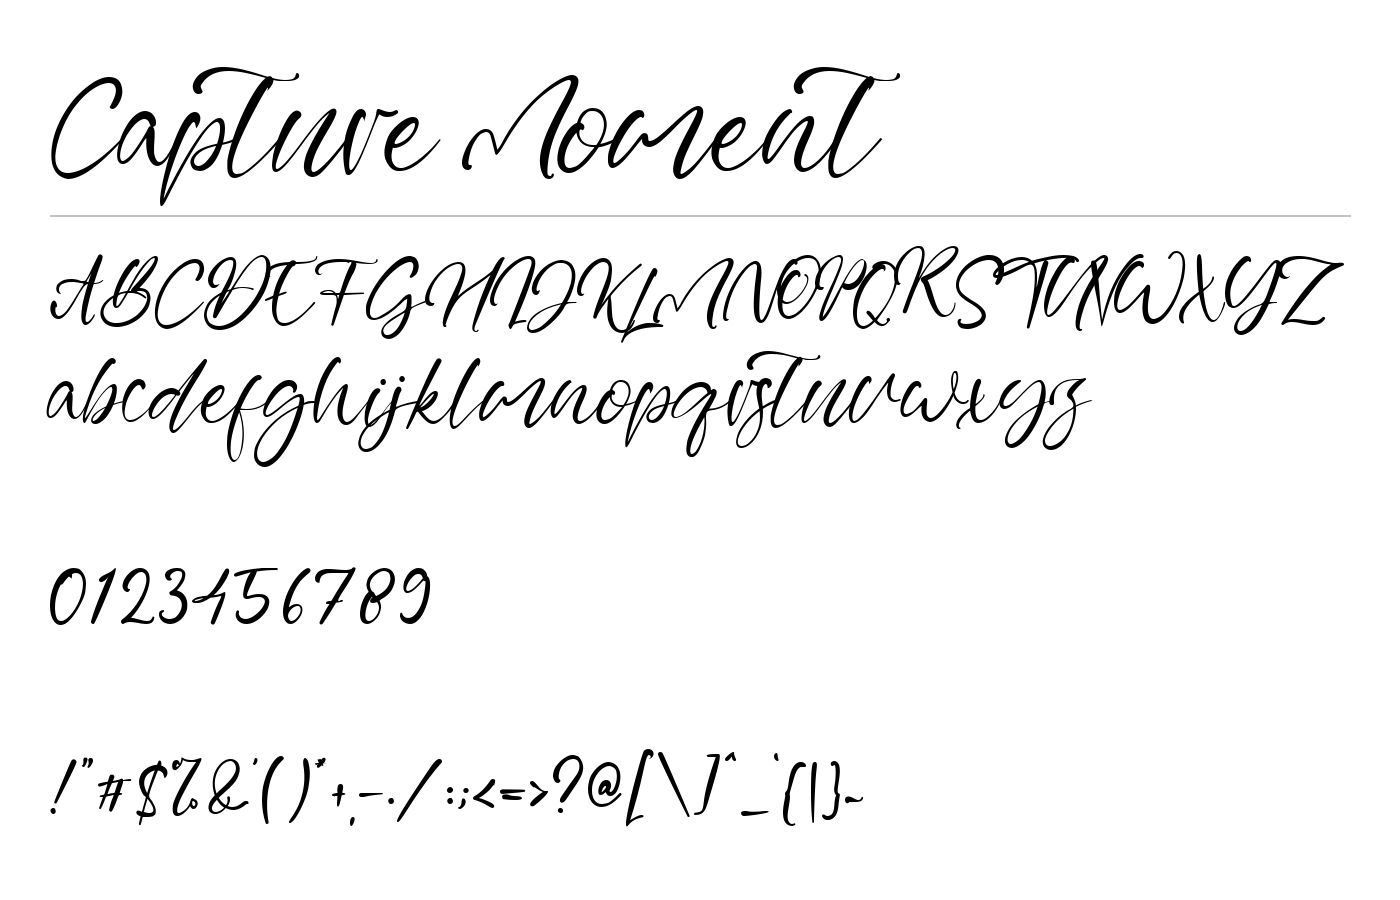 Capture Moment
ABCDEFGHIJKLMNOPQRSTUVWXYZ
abcdefghijklmnopqrstuvwxyz
0123456789
!"#$%&'()*+,-./:;<=>?@[\]^_`{|}~